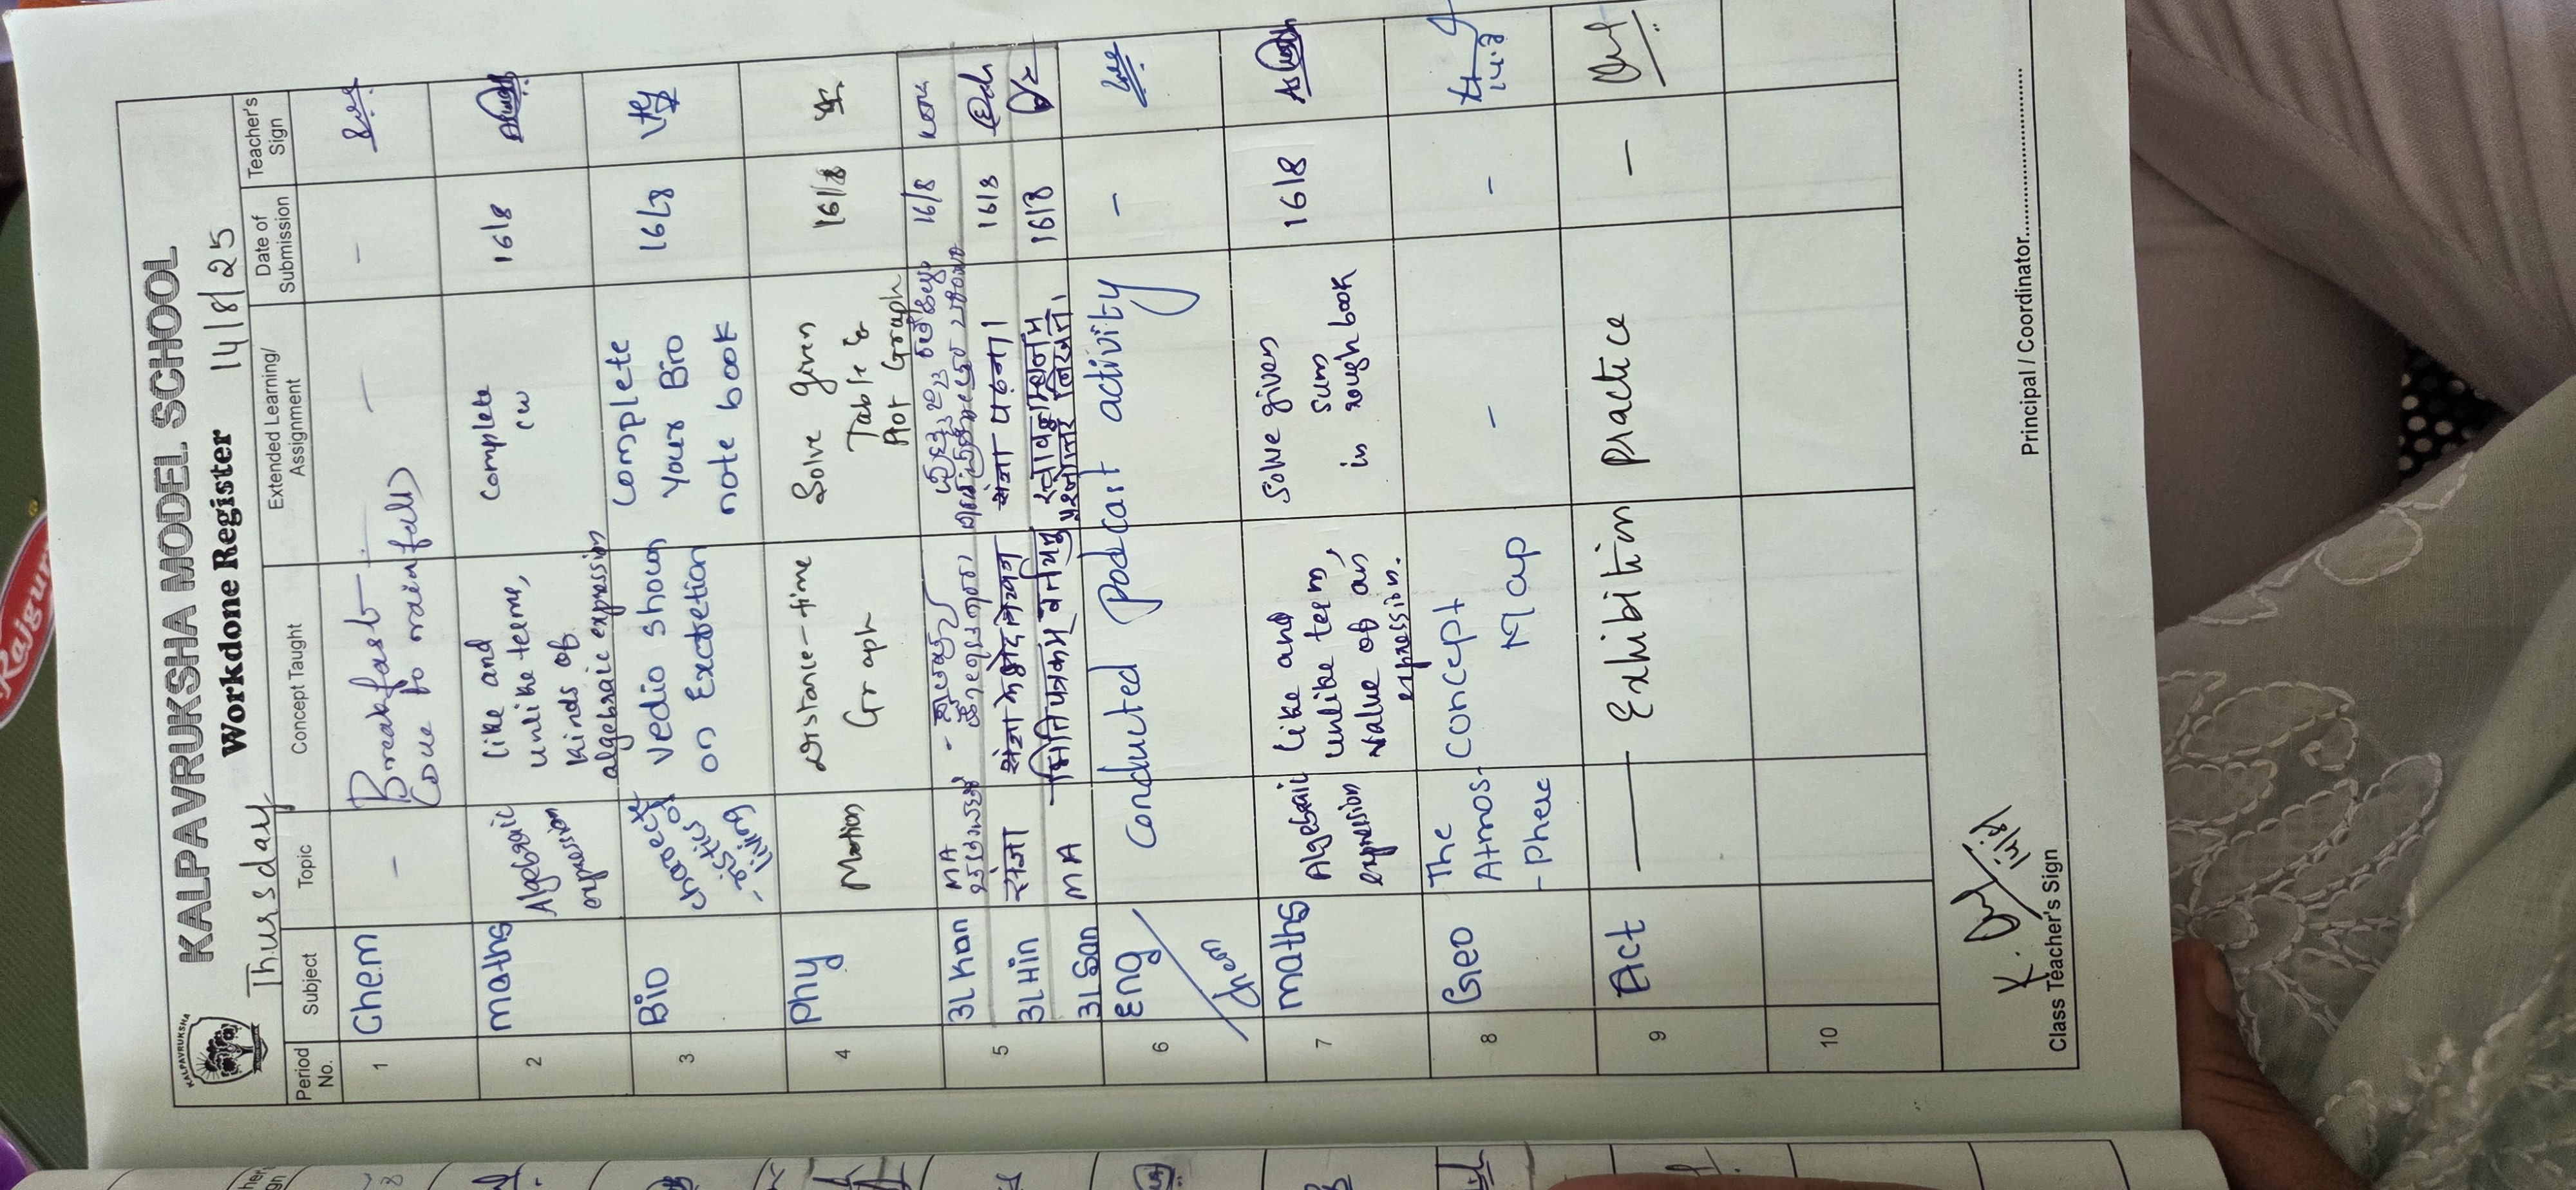 KALPAVRUKSHA
KALPAVRUKSHA MODEL SCHOOL
Thursday Workdone Register 14/8/25
Period No. Subject Topic Concept Taught Extended Learning/ Assignment Date of Submission Teacher's Sign
1 Chem - Breakfast - -
(Due to rainfall)
2 maths Algebraic expression like and unlike terms, kinds of algebraic expression complete cw 16/8
3 Bio vedio shown on Excretion complete your Bio note book 16/8
4 Phy Motion distance-time Graph Solve given Table & Plot Graph 16/8
5 3L Kan MA 16/8
3L Hin संज्ञा संज्ञा के भेद लेखन संज्ञा पढ़ना। 16/8
3L San MA 16/8
6 Eng / chem Conducted Podcast activity -
7 maths Algebraic expression like and unlike term, value of an expression. Solve given sum in rough book 16/8
8 Geo The Atmos-Phere concept Map - - 14.8
9 Act Exhibition Practice -
10
K.
Class Teacher's Sign Principal / Coordinator
Rajgur